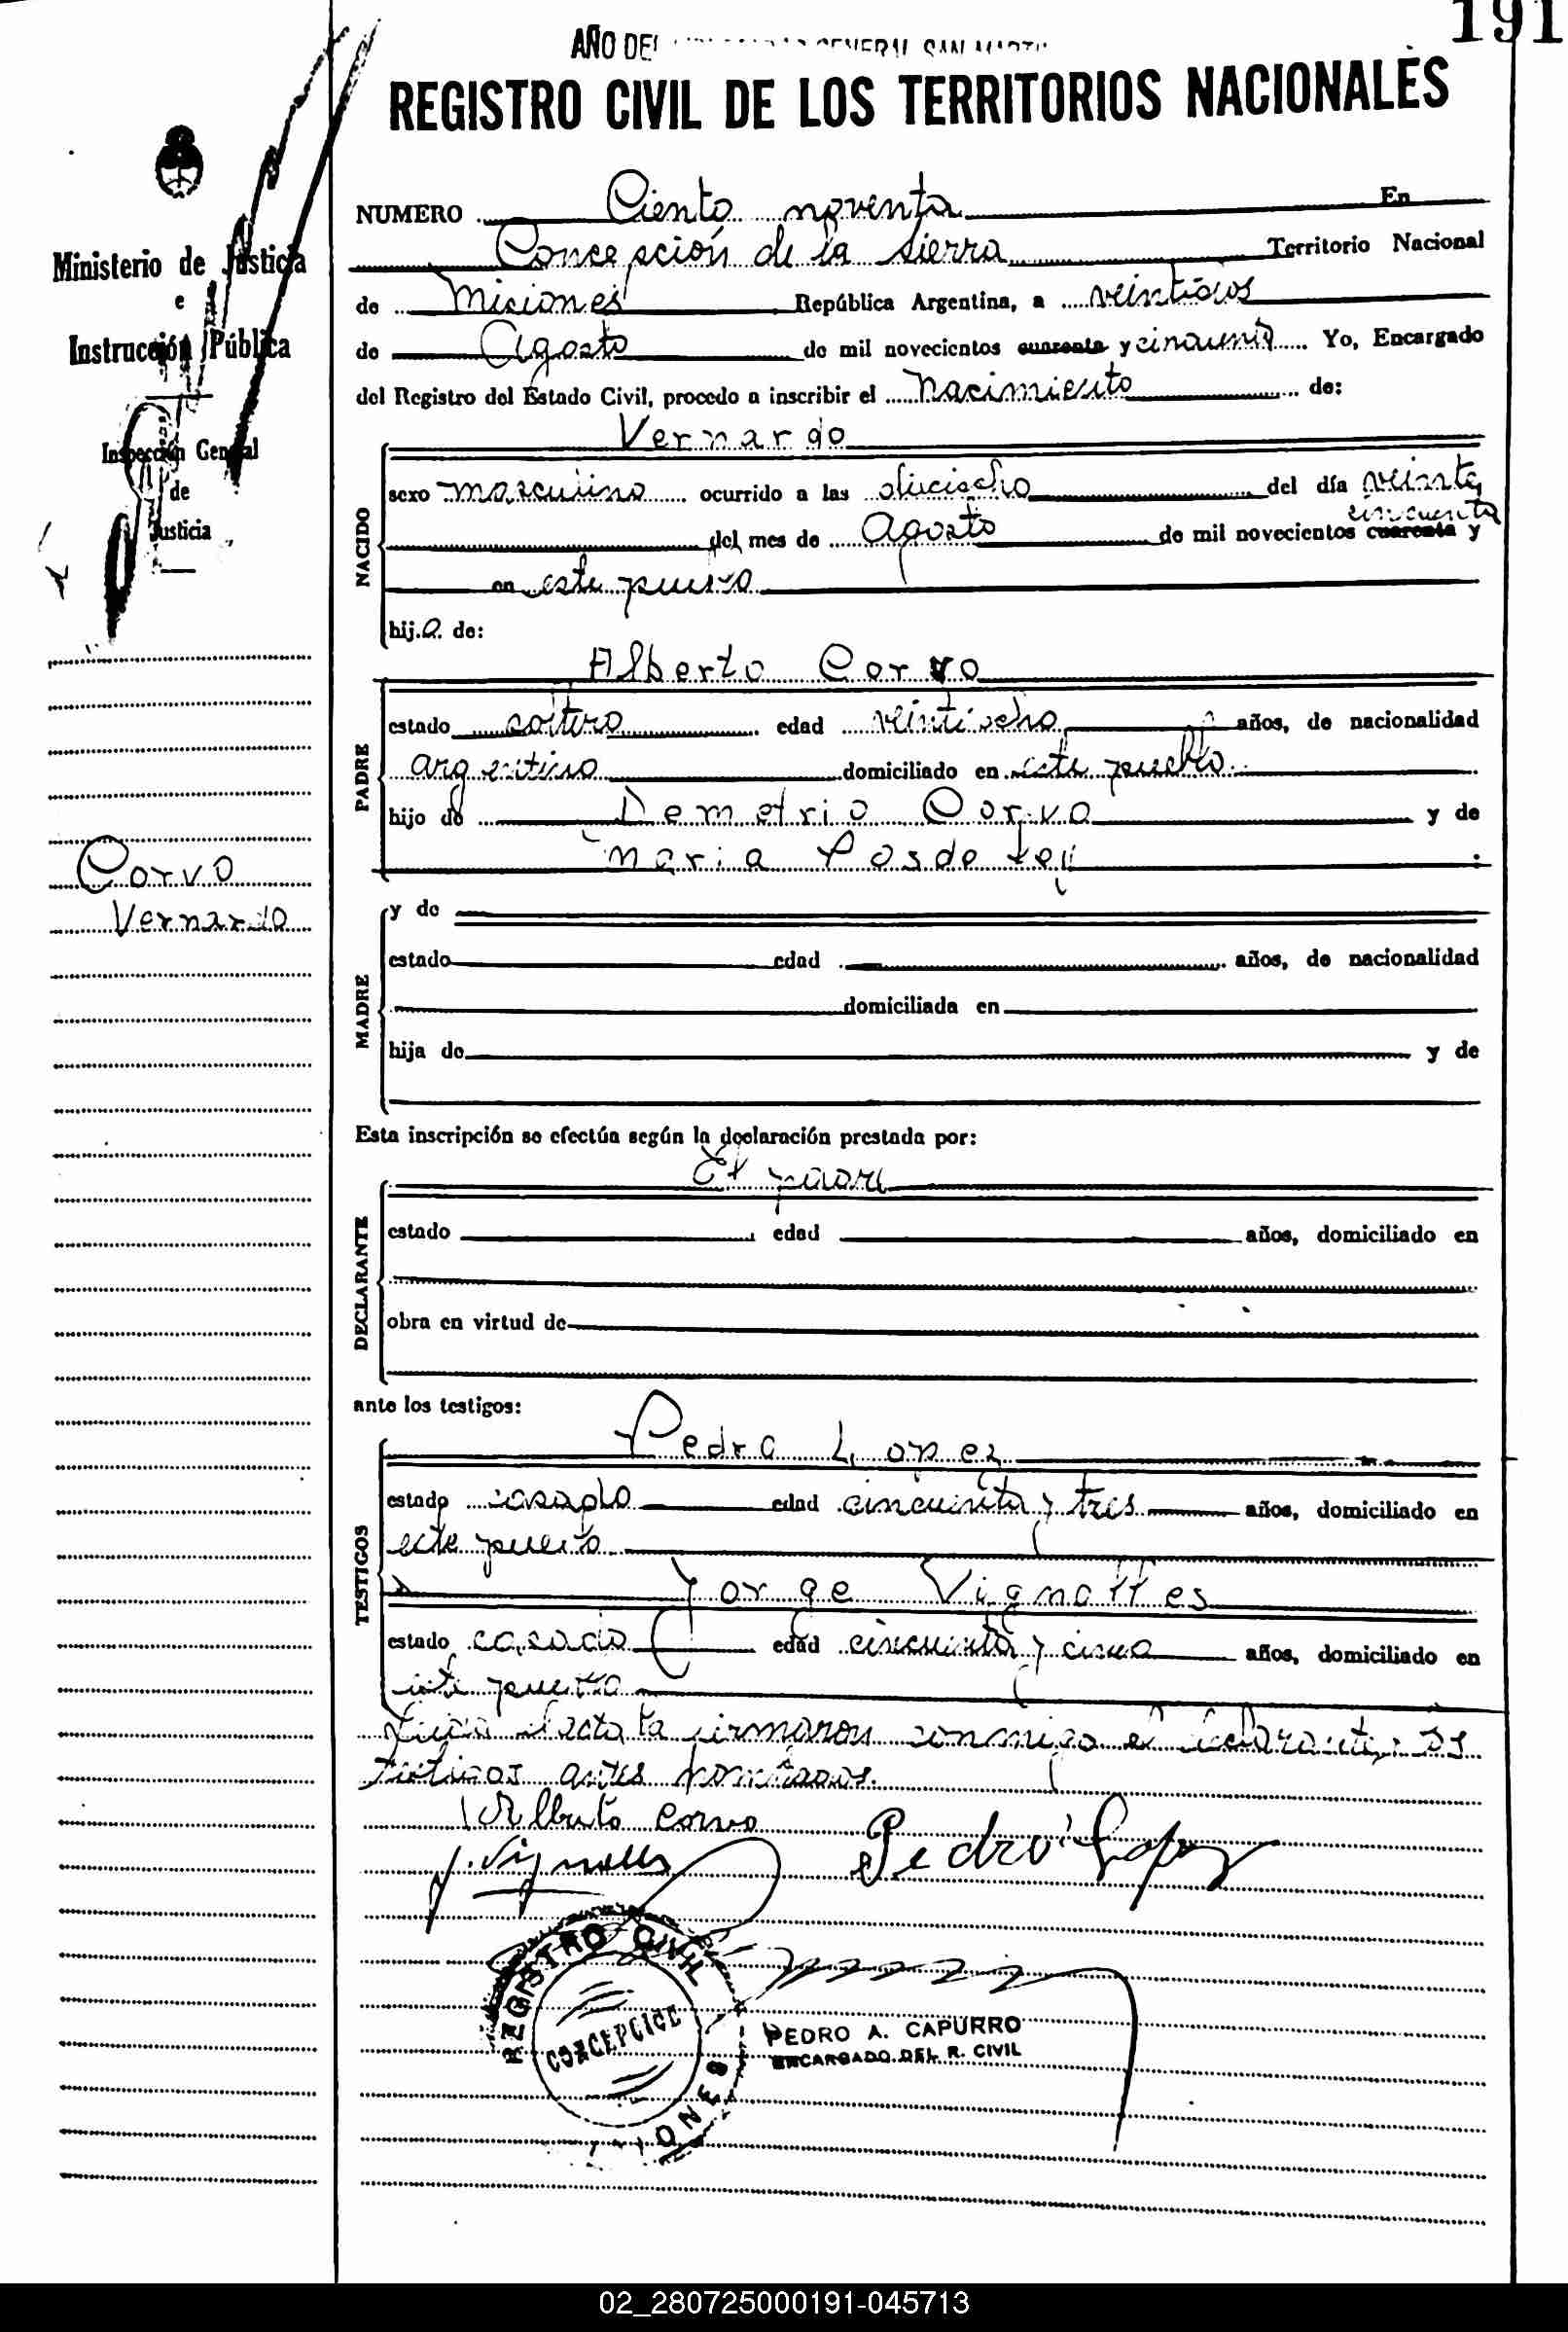 191
AÑO DEL GENERAL SAN MARTIN
REGISTRO CIVIL DE LOS TERRITORIOS NACIONALES
Ministerio de Justicia
e
Instrucción Pública
Inspección General
de
Justicia
NUMERO Ciento noventa En
Concepción de la Sierra Territorio Nacional
de Misiones República Argentina, a veintidos
de Agosto de mil novecientos cuarenta y cincuenta Yo, Encargado
del Registro del Estado Civil, procedo a inscribir el Nacimiento de:
Vernardo
NACIDO
sexo masculino ocurrido a las dieciocho del día veinte
cincuenta
del mes de Agosto de mil novecientos cuarenta y
en este pueblo
hijo de:
Alberto Corvo
PADRE
estado soltero edad veintiocho años, de nacionalidad
argentino domiciliado en este pueblo
hijo de Demetrio Corvo y de
Maria Posdeley
Corvo
Vernardo
MADRE
y de
estado edad años, de nacionalidad
domiciliada en
hija de y de
Esta inscripción se efectúa según la declaración prestada por:
El padre
DECLARANTE
estado edad años, domiciliado en
obra en virtud de
ante los testigos:
Pedro Lopez
TESTIGOS
estado casado edad cincuenta y tres años, domiciliado en
este pueblo
Jorge Vignolles
estado casado edad cincuenta y cinco años, domiciliado en
este pueblo
Leida el acta la firmaron conmigo el declarante y os
testigos antes nombrados.
Alberto Corvo
J. Vignolles Pedro Lopez
REGISTRO CIVIL
CONCEPCION
MISIONES
PEDRO A. CAPURRO
ENCARGADO DEL R. CIVIL
02_280725000191-045713